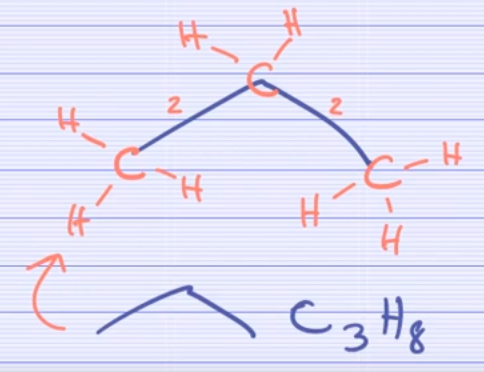 H H
C
2 2
H
C H
H
C H
H
H
C₃H₈